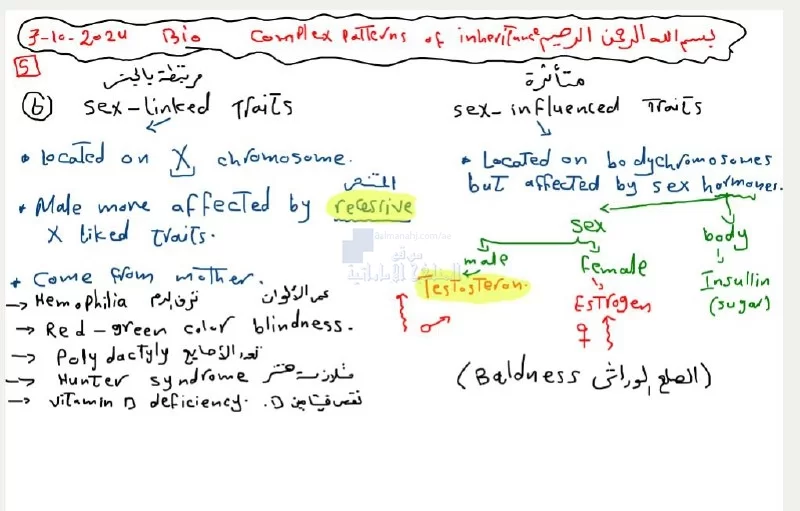 3-10-2024 Bio Complex patterns of inheritance بسم الله الرحمن الرحيم
5
مرتبطة بالجنس
6 sex-linked Traits
* Located on X chromosome.
المتنحي
* Male more affected by recessive
X liked traits.
* Come from mother.
→ Hemophilia نزف الدم عمى الألوان
→ Red-green color blindness.
→ Polydactyly تعدد الأصابع
→ Hunter syndrome متلازمة هنتر
→ vitamin D deficiency. نقص فيتامين D.
متأثرة
sex-influenced Traits
* Located on bodychromosomes
but affected by sex hormones.
sex body
male female Insullin
Testosteron. Estrogen (sugar)
♂ ♀
(Baldness الصلع الوراثي)
almanahj.com/ae
موقع
المناهج الإماراتية